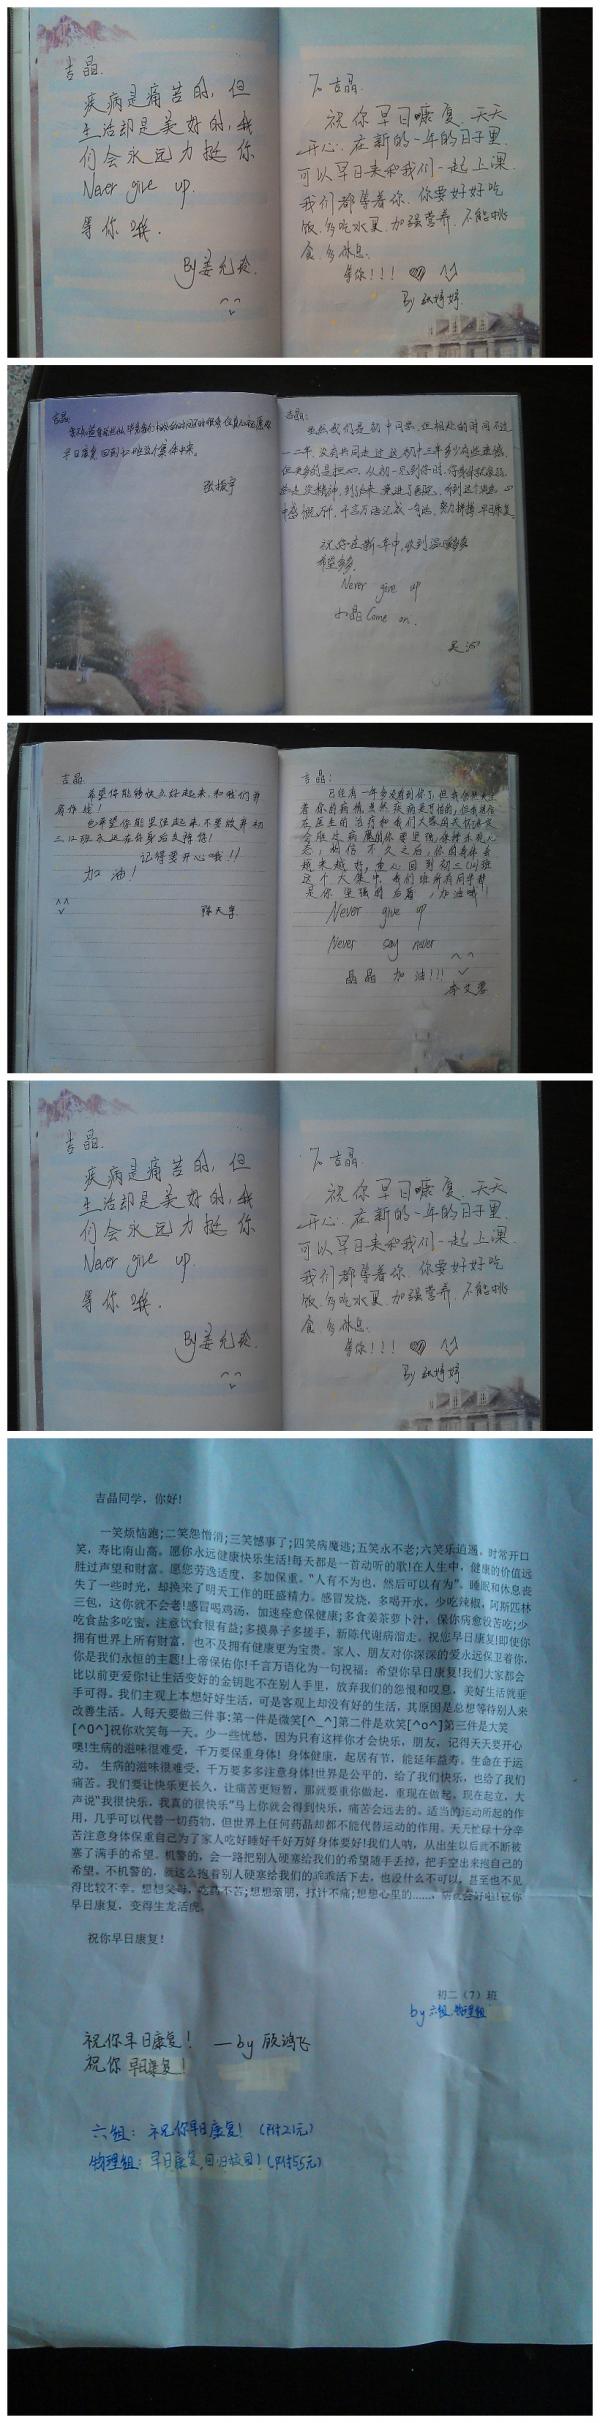 吉晶.
疾病是痛苦的,但
生活却是美好的,我
们会永远力挺你
Never give up.
等你哦.
By姜允玲.
To 吉晶.
祝你早日康复.天天
开心.在新的一年的日子里.
可以早日来和我们一起上课.
我们都等着你.你要好好吃
饭.多吃水果.加强营养.不能挑
食.多休息.
等你!!!
By 张婷婷.
吉晶:
早日康复,回到
张振宇
吉晶:
虽然我们是初中同学.但相处的时间不过
一二年.没有共同走过这初中三年多少有些遗憾.
祝你在新一年中,收到温暖多多
希望多多.
Never give up
小晶Come on.
吉晶.
希望你能够快点好起来,和我们并
肩作战!
也希望你能坚强起来,不要放弃初
三12班永远在你身后支持你!
记得要开心哦!!
加油!
陈天宇
吉晶:
已经有一年多没看到你了,但我仍然关注
着你的病情,虽然疾病是可怕的,但我相信
在医生的治疗和我们大家的关怀下定
会胜过病魔的你要坚强,保持乐观心
态,相信不久之后,你的身体会
越来越好,重心回到初三(12)班
这个大集中,我们班所有同学都
是你坚强的后盾,加油哦!!
Never give up
Never say never
晶晶加油!!!
李艾蓉
吉晶.
疾病是痛苦的,但
生活却是美好的,我
们会永远力挺你
Never give up.
等你哦.
By姜允玲.
To 吉晶.
祝你早日康复.天天
开心.在新的一年的日子里.
可以早日来和我们一起上课.
我们都等着你.你要好好吃
饭.多吃水果.加强营养.不能挑
食.多休息.
等你!!!
By 张婷婷.
吉晶同学,你好!
一笑烦恼跑;二笑怨憎消;三笑憾事了;四笑病魔逃;五笑永不老;六笑乐逍遥。时常开口
笑,寿比南山高。愿你永远健康快乐生活!每天都是一首动听的歌!在人生中,健康的价值远
胜过声望和财富。愿您劳逸适度,多加保重。“人有不为也,然后可以有为”。睡眠和休息丧
失了一些时光,却换来了明天工作的旺盛精力。感冒发烧,多喝开水,少吃辣椒,阿斯匹林
三包,这你就不会老!感冒喝鸡汤,加速痊愈保健康;多食姜茶萝卜汁,保你病愈没苦吃;少
吃食盐多吃蜜,注意饮食很有益;多摸鼻子多搓手,新陈代谢病溜走。祝您早日康复!即使你
拥有世界上所有财富,也不及拥有健康更为宝贵。家人、朋友对你深深的爱永远保卫着你,
你是我们永恒的主题!上帝保佑你!千言万语化为一句祝福:希望你早日康复!我们大家都会
比以前更爱你!让生活变好的金钥匙不在别人手里,放弃我们的怨恨和叹息,美好生活就垂
手可得。我们主观上本想好好生活,可是客观上却没有好的生活,其原因是总想等待别人来
改善生活。人每天要做三件事:第一件是微笑[^_^]第二件是欢笑[^o^]第三件是大笑
[^O^]祝你欢笑每一天。少一些忧愁,因为只有这样你才会快乐,朋友,记得天天要开心
噢!生病的滋味很难受,千万要保重身体!身体健康,起居有节,能延年益寿。生命在于运
动。 生病的滋味很难受,千万要多多注意身体!世界是公平的,给了我们快乐,也给了我们
痛苦。我们要让快乐更长久,让痛苦更短暂,那就要重你做起,重现在做起。现在起立,大
声说“我很快乐,我真的很快乐”马上你就会得到快乐,痛苦会远去的。适当的运动所起的作
用,几乎可以代替一切药物,但世界上任何药品却都不能代替运动的作用。天天忙碌十分辛
苦注意身体保重自己为了家人吃好睡好千好万好身体要好!我们人呐,从出生以后就不断被
塞了满手的希望。机警的,会一路把别人硬塞给我们的希望随手丢掉,把手空出来抱自己的
希望。不机警的,就这么抱着别人硬塞给我们的乖乖活下去,也没什么不可以。甚至也不见
得比较不幸。想想父母,吃药不苦;想想亲朋,打针不痛;想想心里的……,病就会好啦!祝你
早日康复,变得生龙活虎。
祝你早日康复!
初二(7)班
by 六组.物理组
祝你早日康复! —by 顾鸿飞
祝你 早日康复!
六组: 祝你早日康复! (附21元)
物理组: 早日康复,回归校园! (附55元)